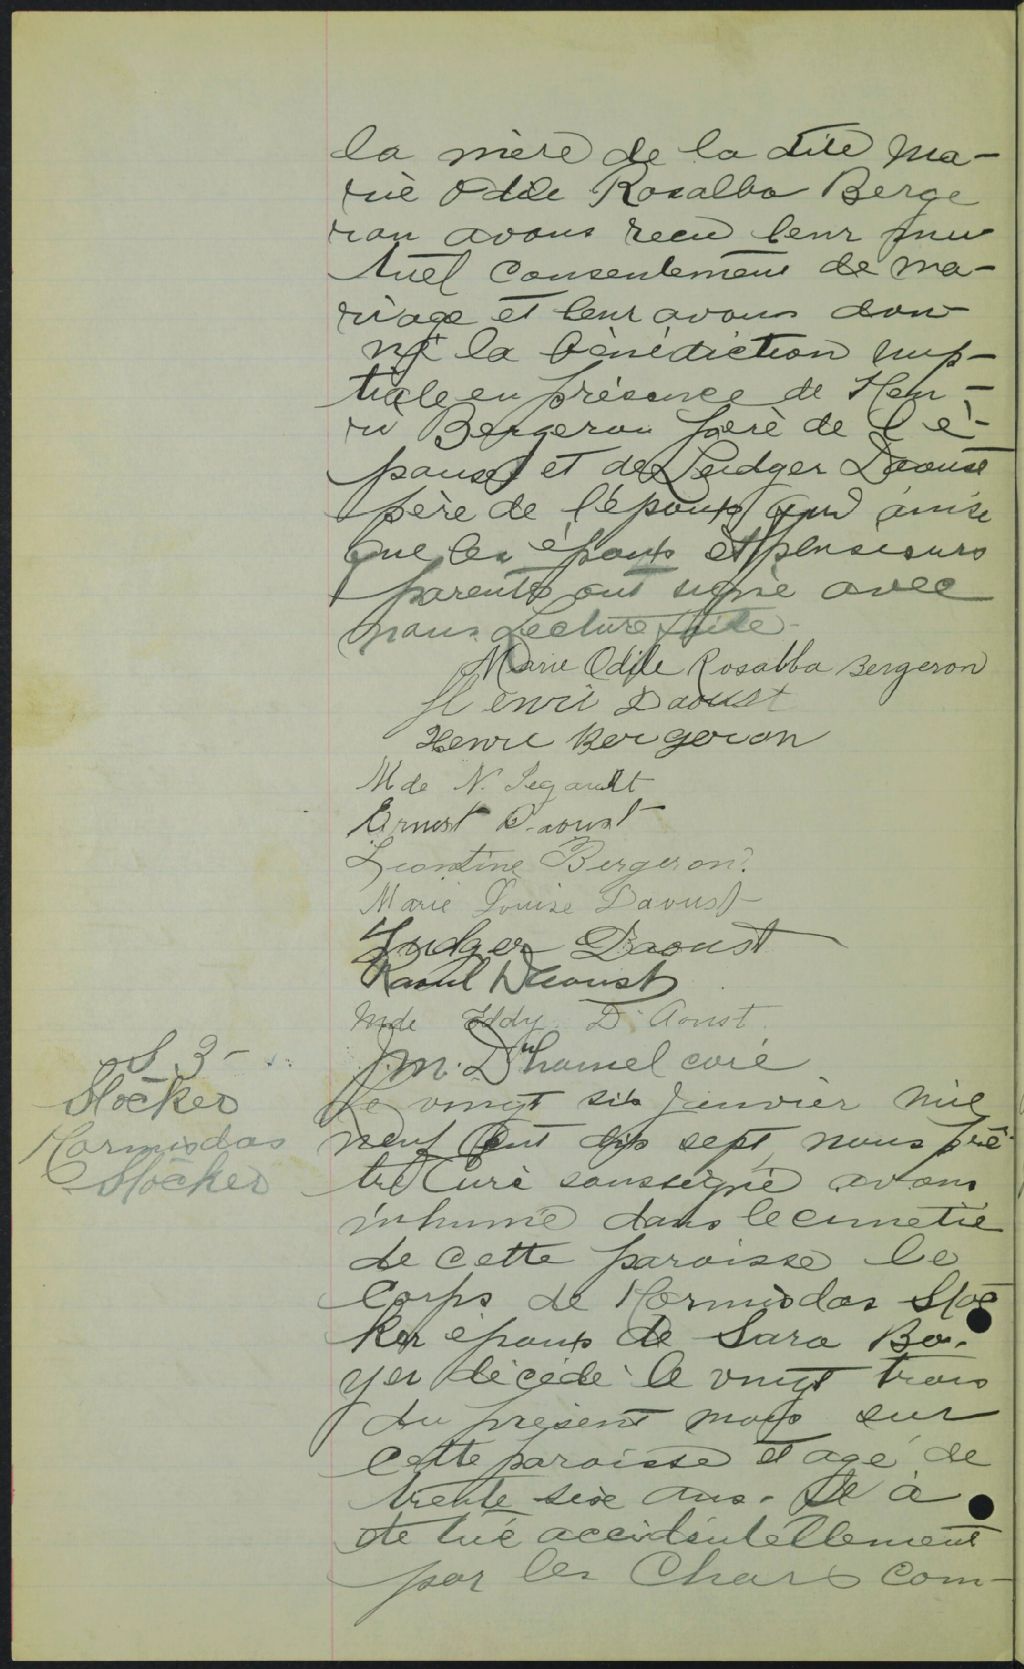 la mère de la dite Ma-
rie Odile Rosalba Berge
ron avons recu leur mu
tuel consentement de ma-
riage et leur avons don
né la bénédiction nup-
tiale en présence de Hen-
ri Bergeron père de l'é-
pouse et de Ludger Daoust
père de l'époux qui ainsi
que les époux et plusieurs
parents ont signé avec
nous Lecture faite.
Marie Odile Rosalba Bergeron
Henri Daoust
Henri Bergeron
Mde N. Legault
Ernest Daoust
Leontine Bergeron.
Marie Louise Daoust
Ludger Daoust
Raoul Daoust
Mde Eddy D'Aoust.
J. M. Duhamel curé
S 3-
Stocker
Hormisdas
Stocker
Le vingt six Janvier mil
neuf cent dix sept, nous prê-
tre Curé soussigné avons
inhumé dans le cimetie
de cette paroisse le
Corps de Hormisdas Stoc
ker époux de Sara Bo-
yer décédé le vingt trois
du présent mois sur
cette paroisse et agé de
trente six ans. Il a
ete tué accidentellement
par les Chars com-